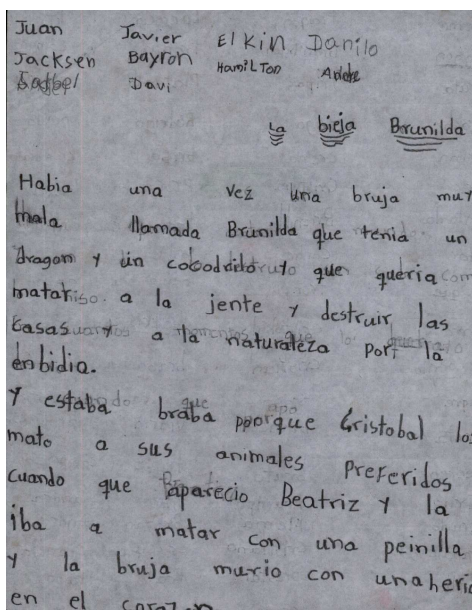 Juan Javier Elkin Danilo
Jacksen Bayron Hamilton
Davi
La bieja Brunilda
Habia una vez una bruja muy
mala llamada Brunilda que tenia un
dragon y un cocodrilo y que queria
matar a la jente y destruir las
casas y a la naturaleza por la
enbidia.
Y estaba braba porque Cristobal los
mato a sus animales preferidos
cuando que aparecio Beatriz y la
iba a matar con una peinilla
y la bruja murio con una heri
en el corazon